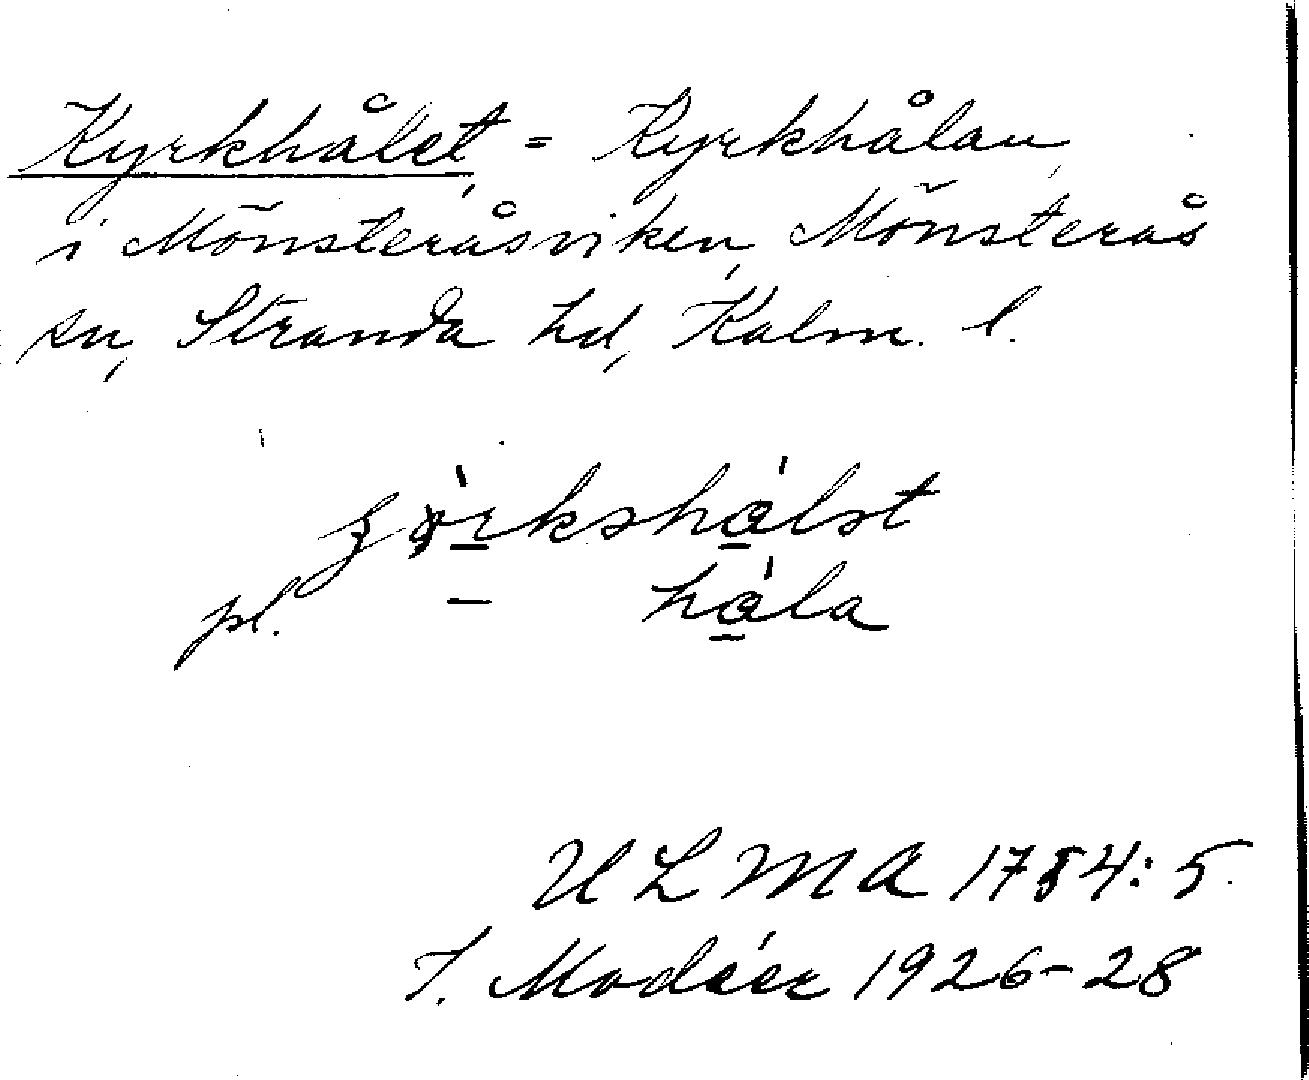 Kyrkhålet, = Kyrkhålan,
i Mönsteråsviken, Mönsterås
sn, Stranda hd, Kalm. l.
pl. – hǻ̱la
ULMA 1784:5.
I. Modéer 1926-28